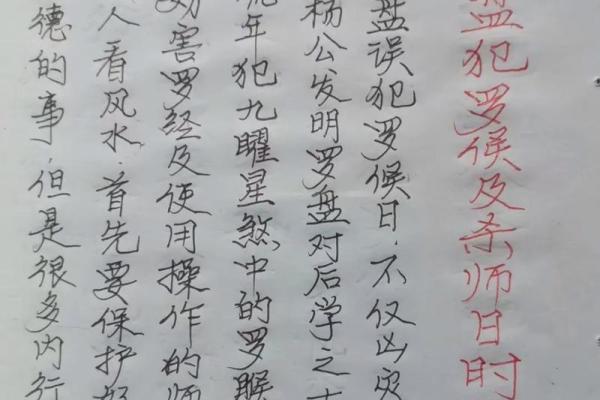 犯罗侯及杀师日时
盘误犯罗侯日,不仅凶灾
杨公发明罗盘对后学之
年犯九曜星煞中的罗睺
害罗经及使用操作的师
人看风水.首先要保护
德的事.但是很多内行